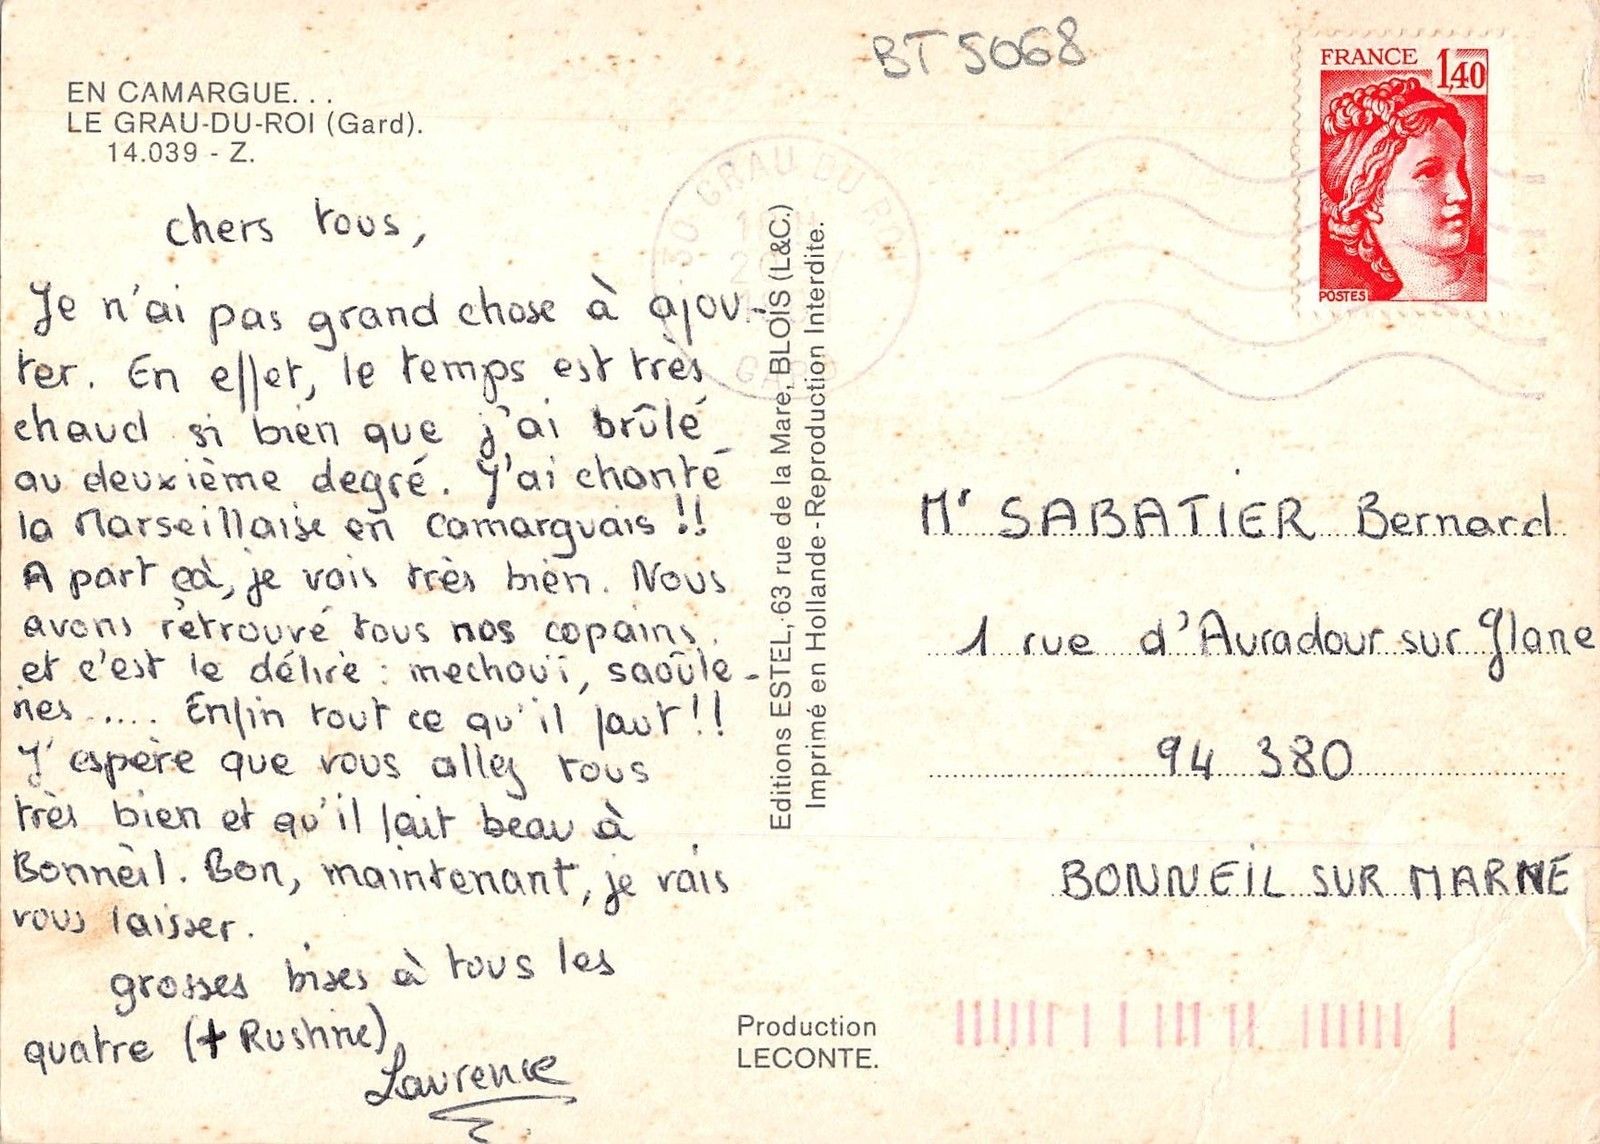 BT 5068
EN CAMARGUE...
LE GRAU-DU-ROI (Gard).
14.039 - Z.
chers tous,
Je n'ai pas grand chose à ajou-
ter. En effet, le temps est très
chaud si bien que j'ai brûlé
au deuxième degré. J'ai chanté
la Marseillaise en camarguais !!
A part çà, je vais très bien. Nous
avons retrouvé tous nos copains.
et c'est le délire : mechouï, saoûle-
ries ..... Enfin tout ce qu'il faut !!
J'espère que vous allez tous
très bien et qu'il fait beau à
Bonneil. Bon, maintenant, je vais
vous laisser.
grosses bises à tous les
quatre (+ Rushne)
Laurence
Editions ESTEL, 63 rue de la Mare, BLOIS (L&C.)
Imprimé en Hollande - Reproduction Interdite.
Production
LECONTE.
30 GRAU DU ROI
GARD
FRANCE 1,40
POSTES
Mr SABATIER Bernard
1 rue d'Auradour sur Glane
94 380
BONNEIL SUR MARNE